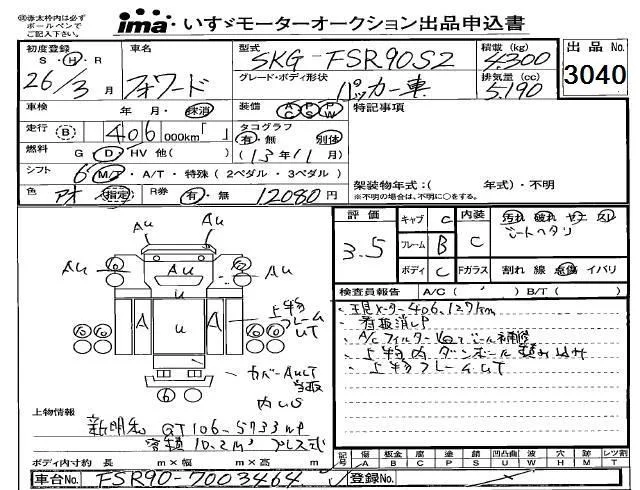 ㊟赤太枠内は必ず
ボールペンで
ご記入下さい。
ima いすゞモーターオークション出品申込書
初度登録 車名 型式 SKG-FSR90S2 積載 (kg) 4,300 出品No.
S・H・R 26/3月 フォワード グレード・ボディ形状 パッカー車 排気量 (cc) 5,190 3040
車検 年 月・抹消 装備 AC PS PW 特記事項
走行 B 406 000km「 」 タコグラフ 有・無 別体
燃料 G・D・HV 他( ) (13年11月)
シフト 6 MT・A/T・特殊(2ペダル・3ペダル)
架装物年式:( 年式)・不明
色 アオ 指定 R券 有・無 12080円 (※不明の場合は、不明に○をする。)
評価 3.5 キャブ C 内装 C 汚れ 破れ キズ スレ
フレーム B シートヘタリ
ボディ C Fガラス 割れ 線 点傷 イバリ
検査員報告 A/C( ) B/T( )
・現メーター406,127km
・看板消し
・上物フレームUT
Au Au
Au Au Au
U
A U A
上物フレームUT
カバーAUT
上物情報
新明和 GT106-5733
容積10.2m³ プレス式
ボディ内寸約 長 m×幅 m×高 m
記号 傷A 板金B 腐C 塗P 錆S 凹凸曲U 波W 穴 跡 ミゾ レツ割
車台No. FSR90-7003464 登録No.